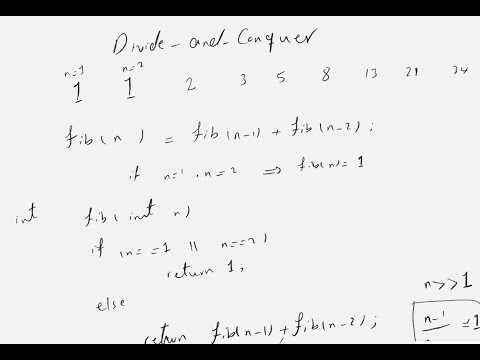 Divide-and-Conquer
n=1 n=2
1 1 2 3 5 8 13 21 34
fib(n) = fib(n-1) + fib(n-2);
if n=1, n=2 ⇒ fib(n)=1
int fib(int n)
if (n==1 || n==2)
return 1;
else
return fib(n-1)+fib(n-2);
n>>1
n-1